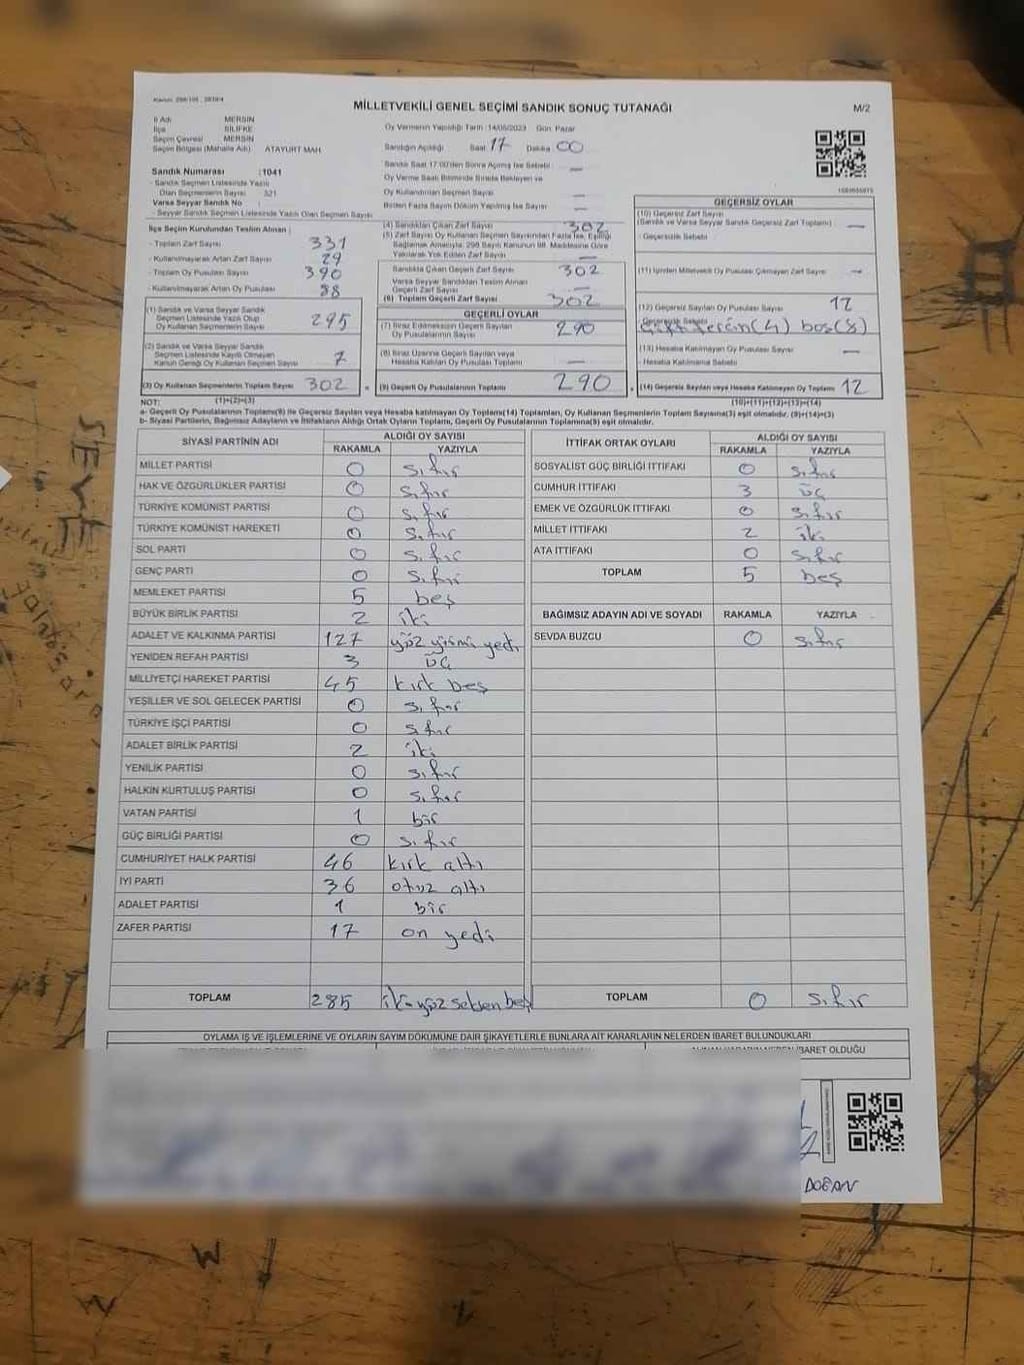 MİLLETVEKİLİ GENEL SEÇİMİ SANDIK SONUÇ TUTANAĞI
M/2
İl Adı MERSİN
İlçe SİLİFKE
Seçim Çevresi MERSİN
Seçim Bölgesi (Mahalle Adı) ATAYURT MAH
Oy Vermenin Yapıldığı Tarih :14/05/2023 Gün Pazar
Sandığın Açıldığı Saat 17 Dakika 00
Sandık Saat 17:00'den Sonra Açılmış İse Sebebi —
Oy Verme Saati Bitiminde Sırada Bekleyen ve
Oy Kullandırılan Seçmen Sayısı —
Birden Fazla Sayım Döküm Yapılmış İse Sayısı —
Sandık Numarası :1041
- Sandık Seçmen Listesinde Yazılı
Olan Seçmenlerin Sayısı 321
Varsa Seyyar Sandık No :
- Seyyar Sandık Seçmen Listesinde Yazılı Olan Seçmen Sayısı
İlçe Seçim Kurulundan Teslim Alınan ;
- Toplam Zarf Sayısı 331
- Kullanılmayarak Artan Zarf Sayısı 29
- Toplam Oy Pusulası Sayısı 390
- Kullanılmayarak Artan Oy Pusulası 88
(1) Sandık ve Varsa Seyyar Sandık
Seçmen Listesinde Yazılı Olup
Oy Kullanan Seçmenlerin Sayısı 295
(2) Sandık ve Varsa Seyyar Sandık
Seçmen Listesinde Kayıtlı Olmayan
Kanun Gereği Oy Kullanan Seçmen Sayısı 7
(3) Oy Kullanan Seçmenlerin Toplam Sayısı 302 =
(1)+(2)=(3)
(4) Sandıktan Çıkan Zarf Sayısı 302
(5) Zarf Sayısı Oy Kullanan Seçmen Sayısından Fazla İse, Eşitliği
Sağlamak Amacıyla, 298 Sayılı Kanunun 98. Maddesine Göre
Yakılarak Yok Edilen Zarf Sayısı —
Sandıkta Çıkan Geçerli Zarf Sayısı 302
Varsa Seyyar Sandıktan Teslim Alınan
Geçerli Zarf Sayısı —
(6) Toplam Geçerli Zarf Sayısı 302
GEÇERLİ OYLAR
(7) İtiraz Edilmeksizin Geçerli Sayılan
Oy Pusulalarının Sayısı 290
(8) İtiraz Üzerine Geçerli Sayılan veya
Hesaba Katılan Oy Pusulası Toplamı —
(9) Geçerli Oy Pusulalarının Toplamı 290
GEÇERSİZ OYLAR
(10) Geçersiz Zarf Sayısı
(Sandık ve Varsa Seyyar Sandık Geçersiz Zarf Toplamı) : —
- Geçersizlik Sebebi
(11) İçinden Milletvekili Oy Pusulası Çıkmayan Zarf Sayısı : —
(12) Geçersiz Sayılan Oy Pusulası Sayısı : 12
(4) boş(8)
(13) Hesaba Katılmayan Oy Pusulası Sayısı : —
- Hesaba Katılmama Sebebi
(14) Geçersiz Sayılan veya Hesaba Katılmayan Oy Toplamı 12
(10)+(11)+(12)+(13)=(14)
NOT:
a- Geçerli Oy Pusulalarının Toplamı(9) ile Geçersiz Sayılan veya Hesaba katılmayan Oy Toplamı(14) Toplamları, Oy Kullanan Seçmenlerin Toplam Sayısına(3) eşit olmalıdır. (9)+(14)=(3)
b- Siyasi Partilerin, Bağımsız Adayların ve İttifakların Aldığı Ortak Oyların Toplamı, Geçerli Oy Pusulalarının Toplamına(9) eşit olmalıdır.
SİYASİ PARTİNİN ADI ALDIĞI OY SAYISI
RAKAMLA YAZIYLA
MİLLET PARTİSİ 0 sıfır
HAK VE ÖZGÜRLÜKLER PARTİSİ 0 sıfır
TÜRKİYE KOMÜNİST PARTİSİ 0 sıfır
TÜRKİYE KOMÜNİST HAREKETİ 0 sıfır
SOL PARTİ 0 sıfır
GENÇ PARTİ 0 sıfır
MEMLEKET PARTİSİ 5 beş
BÜYÜK BİRLİK PARTİSİ 2 iki
ADALET VE KALKINMA PARTİSİ 127 yüz yirmi yedi
YENİDEN REFAH PARTİSİ 3 üç
MİLLİYETÇİ HAREKET PARTİSİ 45 kırk beş
YEŞİLLER VE SOL GELECEK PARTİSİ 0 sıfır
TÜRKİYE İŞÇİ PARTİSİ 0 sıfır
ADALET BİRLİK PARTİSİ 2 iki
YENİLİK PARTİSİ 0 sıfır
HALKIN KURTULUŞ PARTİSİ 0 sıfır
VATAN PARTİSİ 1 bir
GÜÇ BİRLİĞİ PARTİSİ 0 sıfır
CUMHURİYET HALK PARTİSİ 46 kırk altı
İYİ PARTİ 36 otuz altı
ADALET PARTİSİ 1 bir
ZAFER PARTİSİ 17 on yedi
TOPLAM 285 iki yüz seksen beş
İTTİFAK ORTAK OYLARI ALDIĞI OY SAYISI
RAKAMLA YAZIYLA
SOSYALİST GÜÇ BİRLİĞİ İTTİFAKI 0 sıfır
CUMHUR İTTİFAKI 3 üç
EMEK VE ÖZGÜRLÜK İTTİFAKI 0 sıfır
MİLLET İTTİFAKI 2 iki
ATA İTTİFAKI 0 sıfır
TOPLAM 5 beş
BAĞIMSIZ ADAYIN ADI VE SOYADI RAKAMLA YAZIYLA
SEVDA BUZCU 0 sıfır
TOPLAM 0 sıfır
OYLAMA İŞ VE İŞLEMLERİNE VE OYLARIN SAYIM DÖKÜMÜNE DAİR ŞİKAYETLERLE BUNLARA AİT KARARLARIN NELERDEN İBARET BULUNDUKLARI
İBARET OLDUĞU
DOĞAN